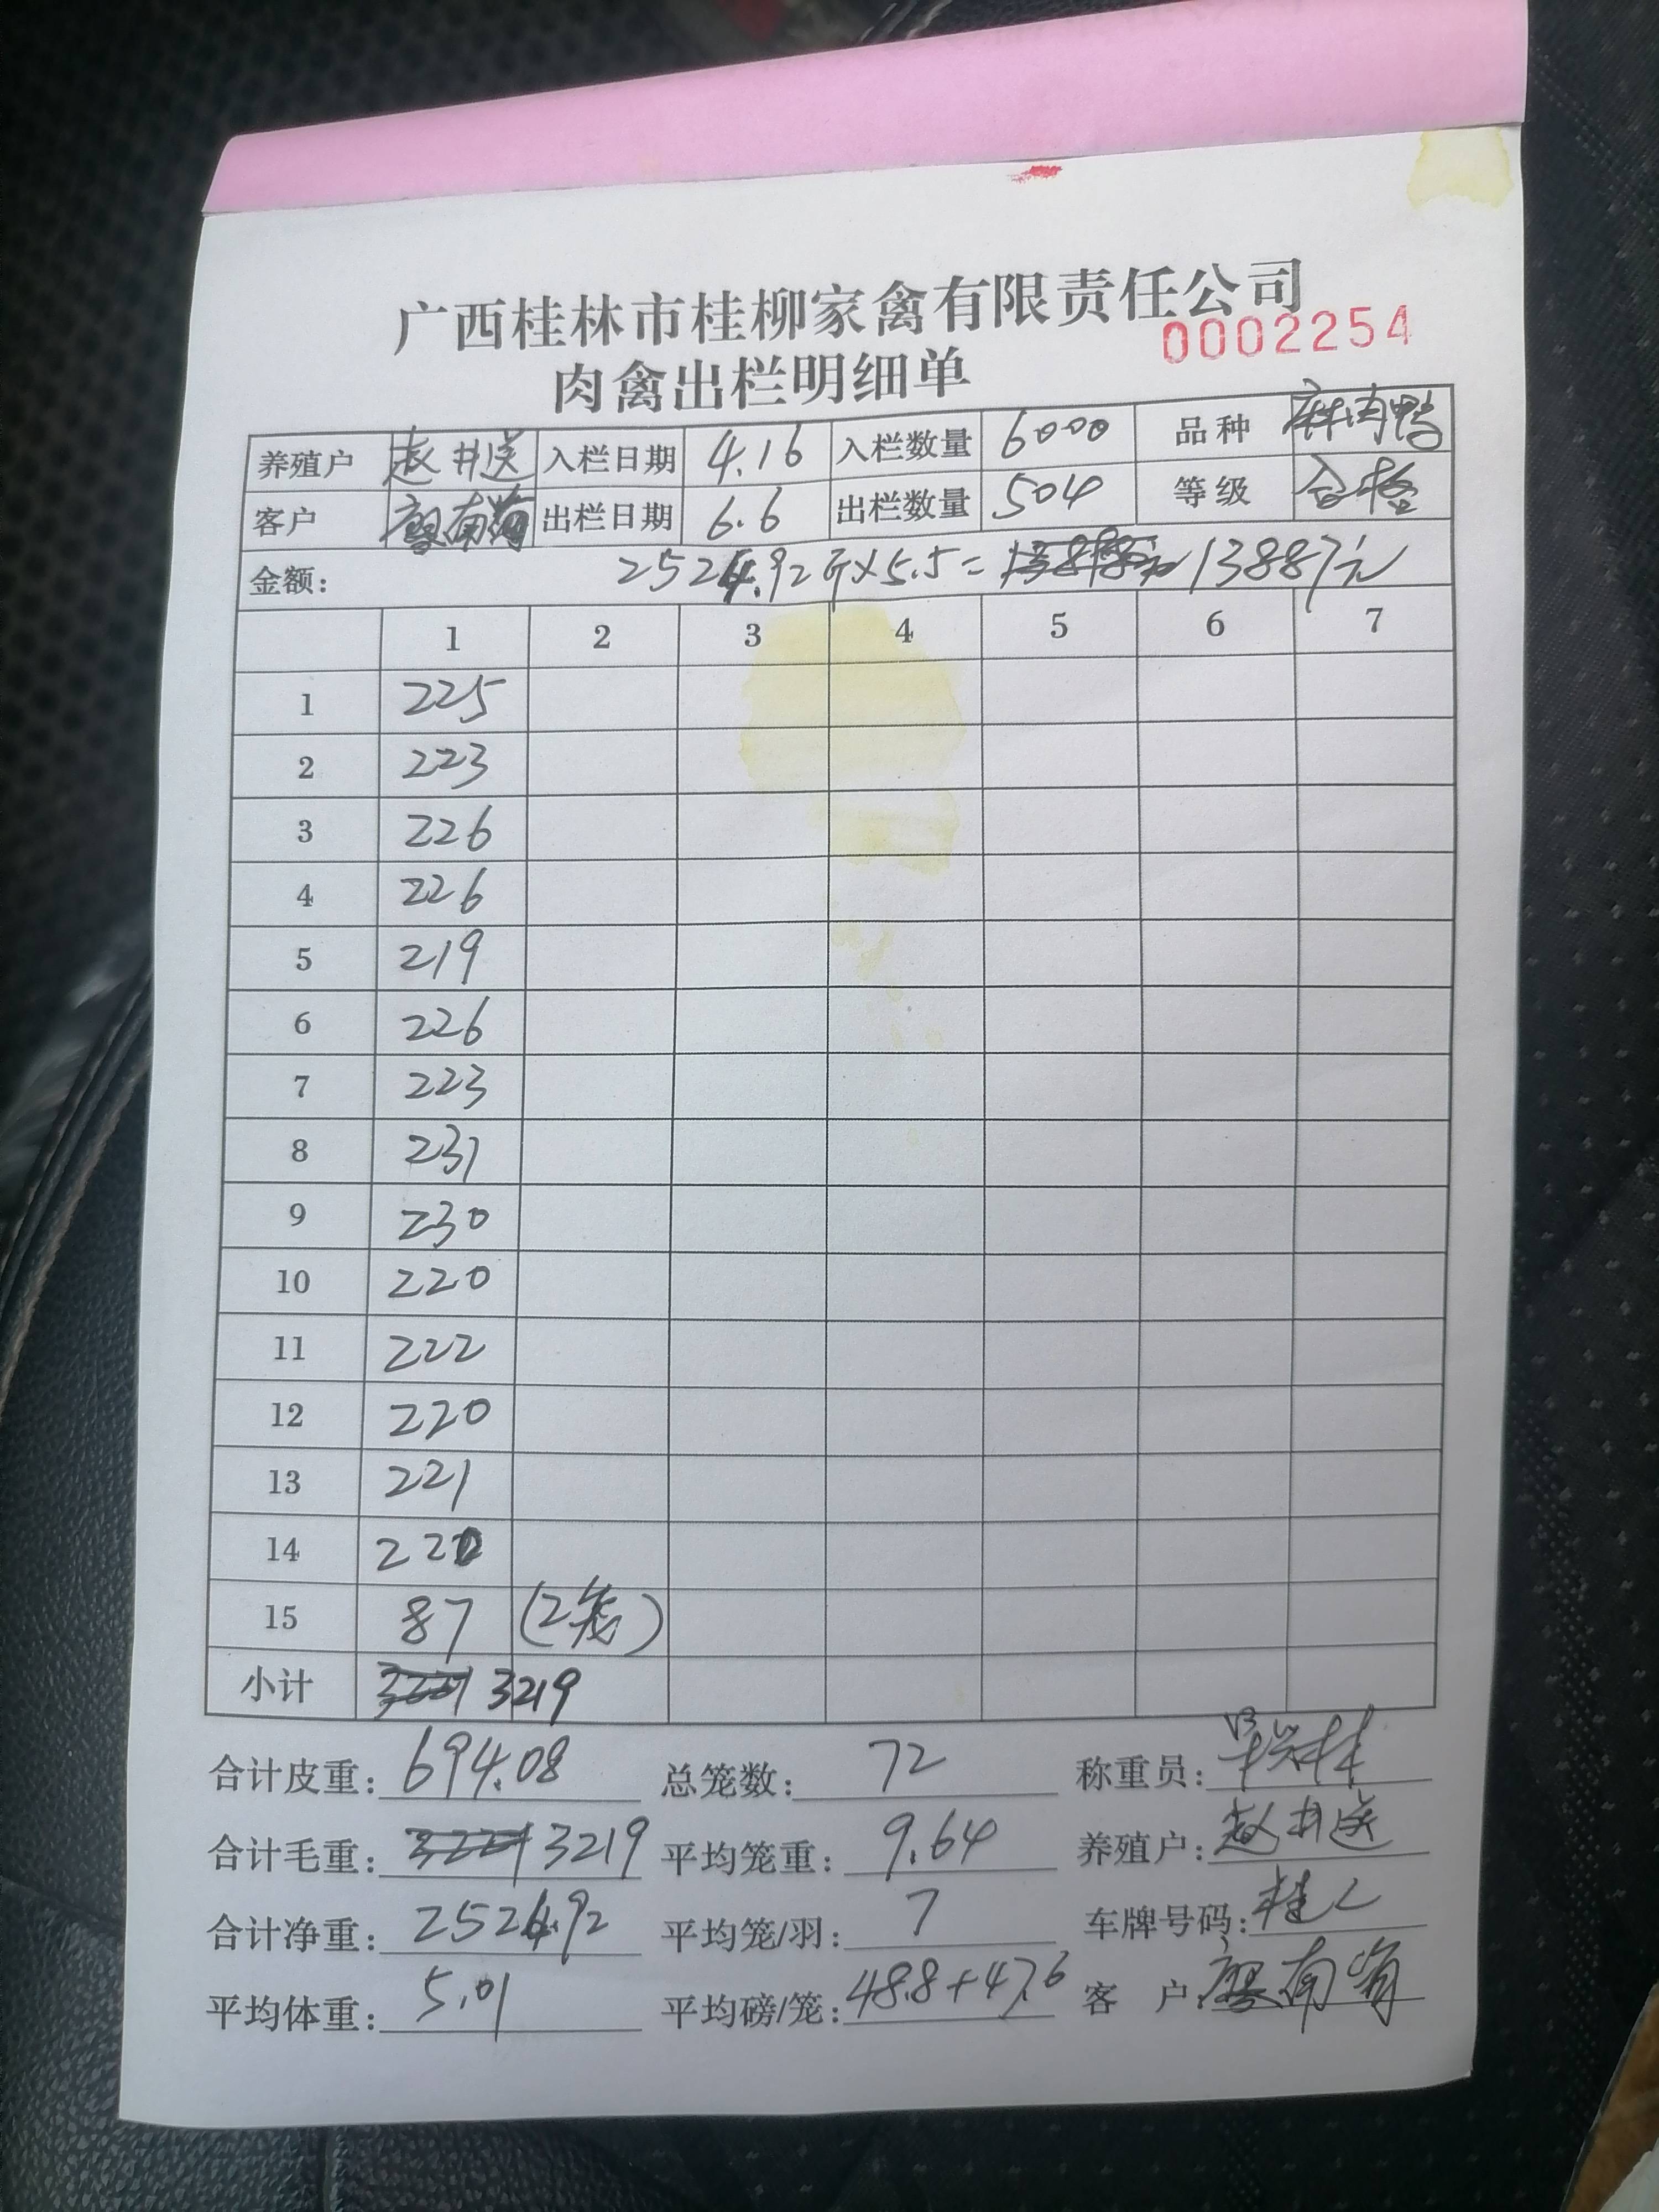 广西桂林市桂柳家禽有限责任公司
0002254
肉禽出栏明细单
养殖户 赵井送 入栏日期 4.16 入栏数量 6000 品种 麻肉鸭
客户 出栏日期 6.6 出栏数量 504 等级 合格
金额: 2524.92斤×5.5= 13887元
1 2 3 4 5 6 7
1 225
2 223
3 226
4 226
5 219
6 226
7 223
8 231
9 230
10 220
11 222
12 220
13 221
14 220
15 87 (2笼)
小计 3219
合计皮重: 694.08 总笼数: 72 称重员:
合计毛重: 3219 平均笼重: 9.64 养殖户: 赵井送
合计净重: 2524.92 平均笼/羽: 7 车牌号码: 桂L
平均体重: 5.01 平均磅/笼: 48.8+47.6 客户: